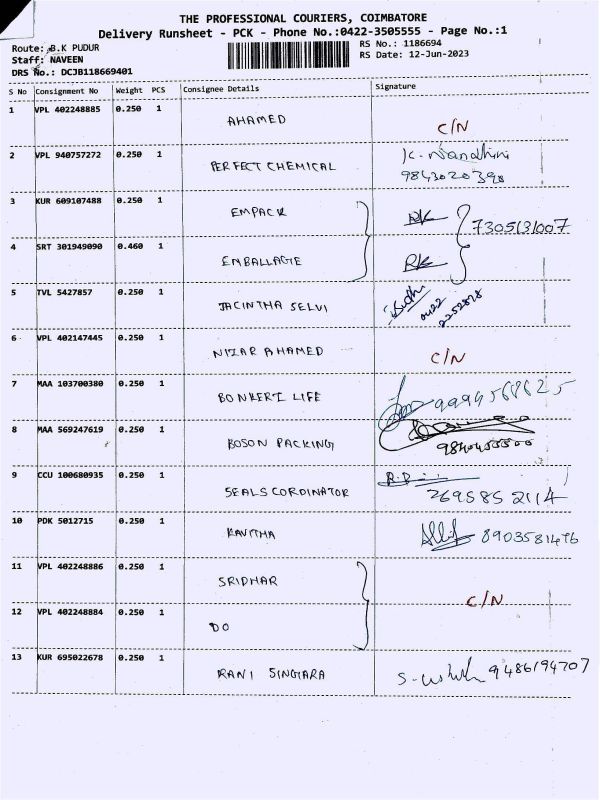 THE PROFESSIONAL COURIERS, COIMBATORE
Delivery Runsheet - PCK - Phone No.:0422-3505555 - Page No.:1
Route: B.K PUDUR RS No.: 1186694
Staff: NAVEEN RS Date: 12-Jun-2023
DRS No.: DCJB118669401
S No Consignment No Weight PCS Consignee Details Signature
1 VPL 402248885 0.250 1 AHAMED C/N
2 VPL 940757272 0.250 1 PERFECT CHEMICAL K. Nandhini
9843020398
3 KUR 609107488 0.250 1 EMPACK RK
7305131007
4 SRT 301949090 0.460 1 ENBALLAGIE RK
5 TVL 5427857 0.250 1 JACINTHA SELVI
0422
2252878
6 VPL 402147445 0.250 1 NIZAR AHAMED C/N
7 MAA 103700380 0.250 1 9994568625
LIFE
8 MAA 569247619 0.250 1 BOSON PACKING 9840455500
9 CCU 100680935 0.250 1 SEALS CORDINATOR
2695852114
10 PDK 5012715 0.250 1 KAVITHA 8903581476
11 VPL 402248886 0.250 1 SRIDHAR
C/N
12 VPL 402248884 0.250 1 DO
13 KUR 695022678 0.250 1 RANI SINGARA 9486194707